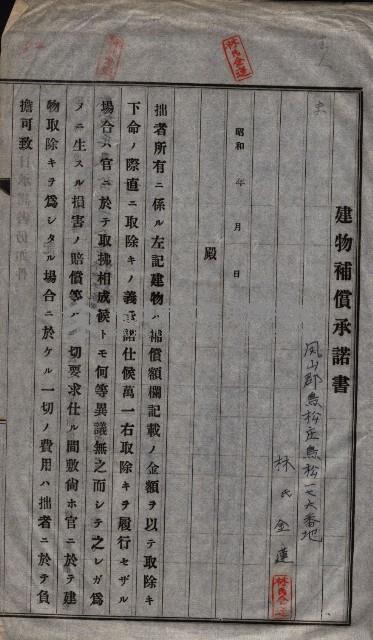 建物補償承諾書
鳳山郡鳥松庄鳥松一七六番地
林氏金蓮
林氏金蓮
昭和 年 月 日
殿
拙者所有ニ係ル左記建物ハ補償額欄記載ノ金額ヲ以テ取除キ
下命ノ際直ニ取除キノ義承諾仕候萬一右取除キヲ履行セザル
場合ハ官ニ於テ取拂相成候トモ何等異議無之而シテ之レガ為
メニ生スル損害ノ賠償等ハ一切要求仕ル間敷尙ホ官ニ於テ建
物取除キヲ為シタル場合ニ於ケル一切ノ費用ハ拙者ニ於テ負
擔可致
林氏金蓮